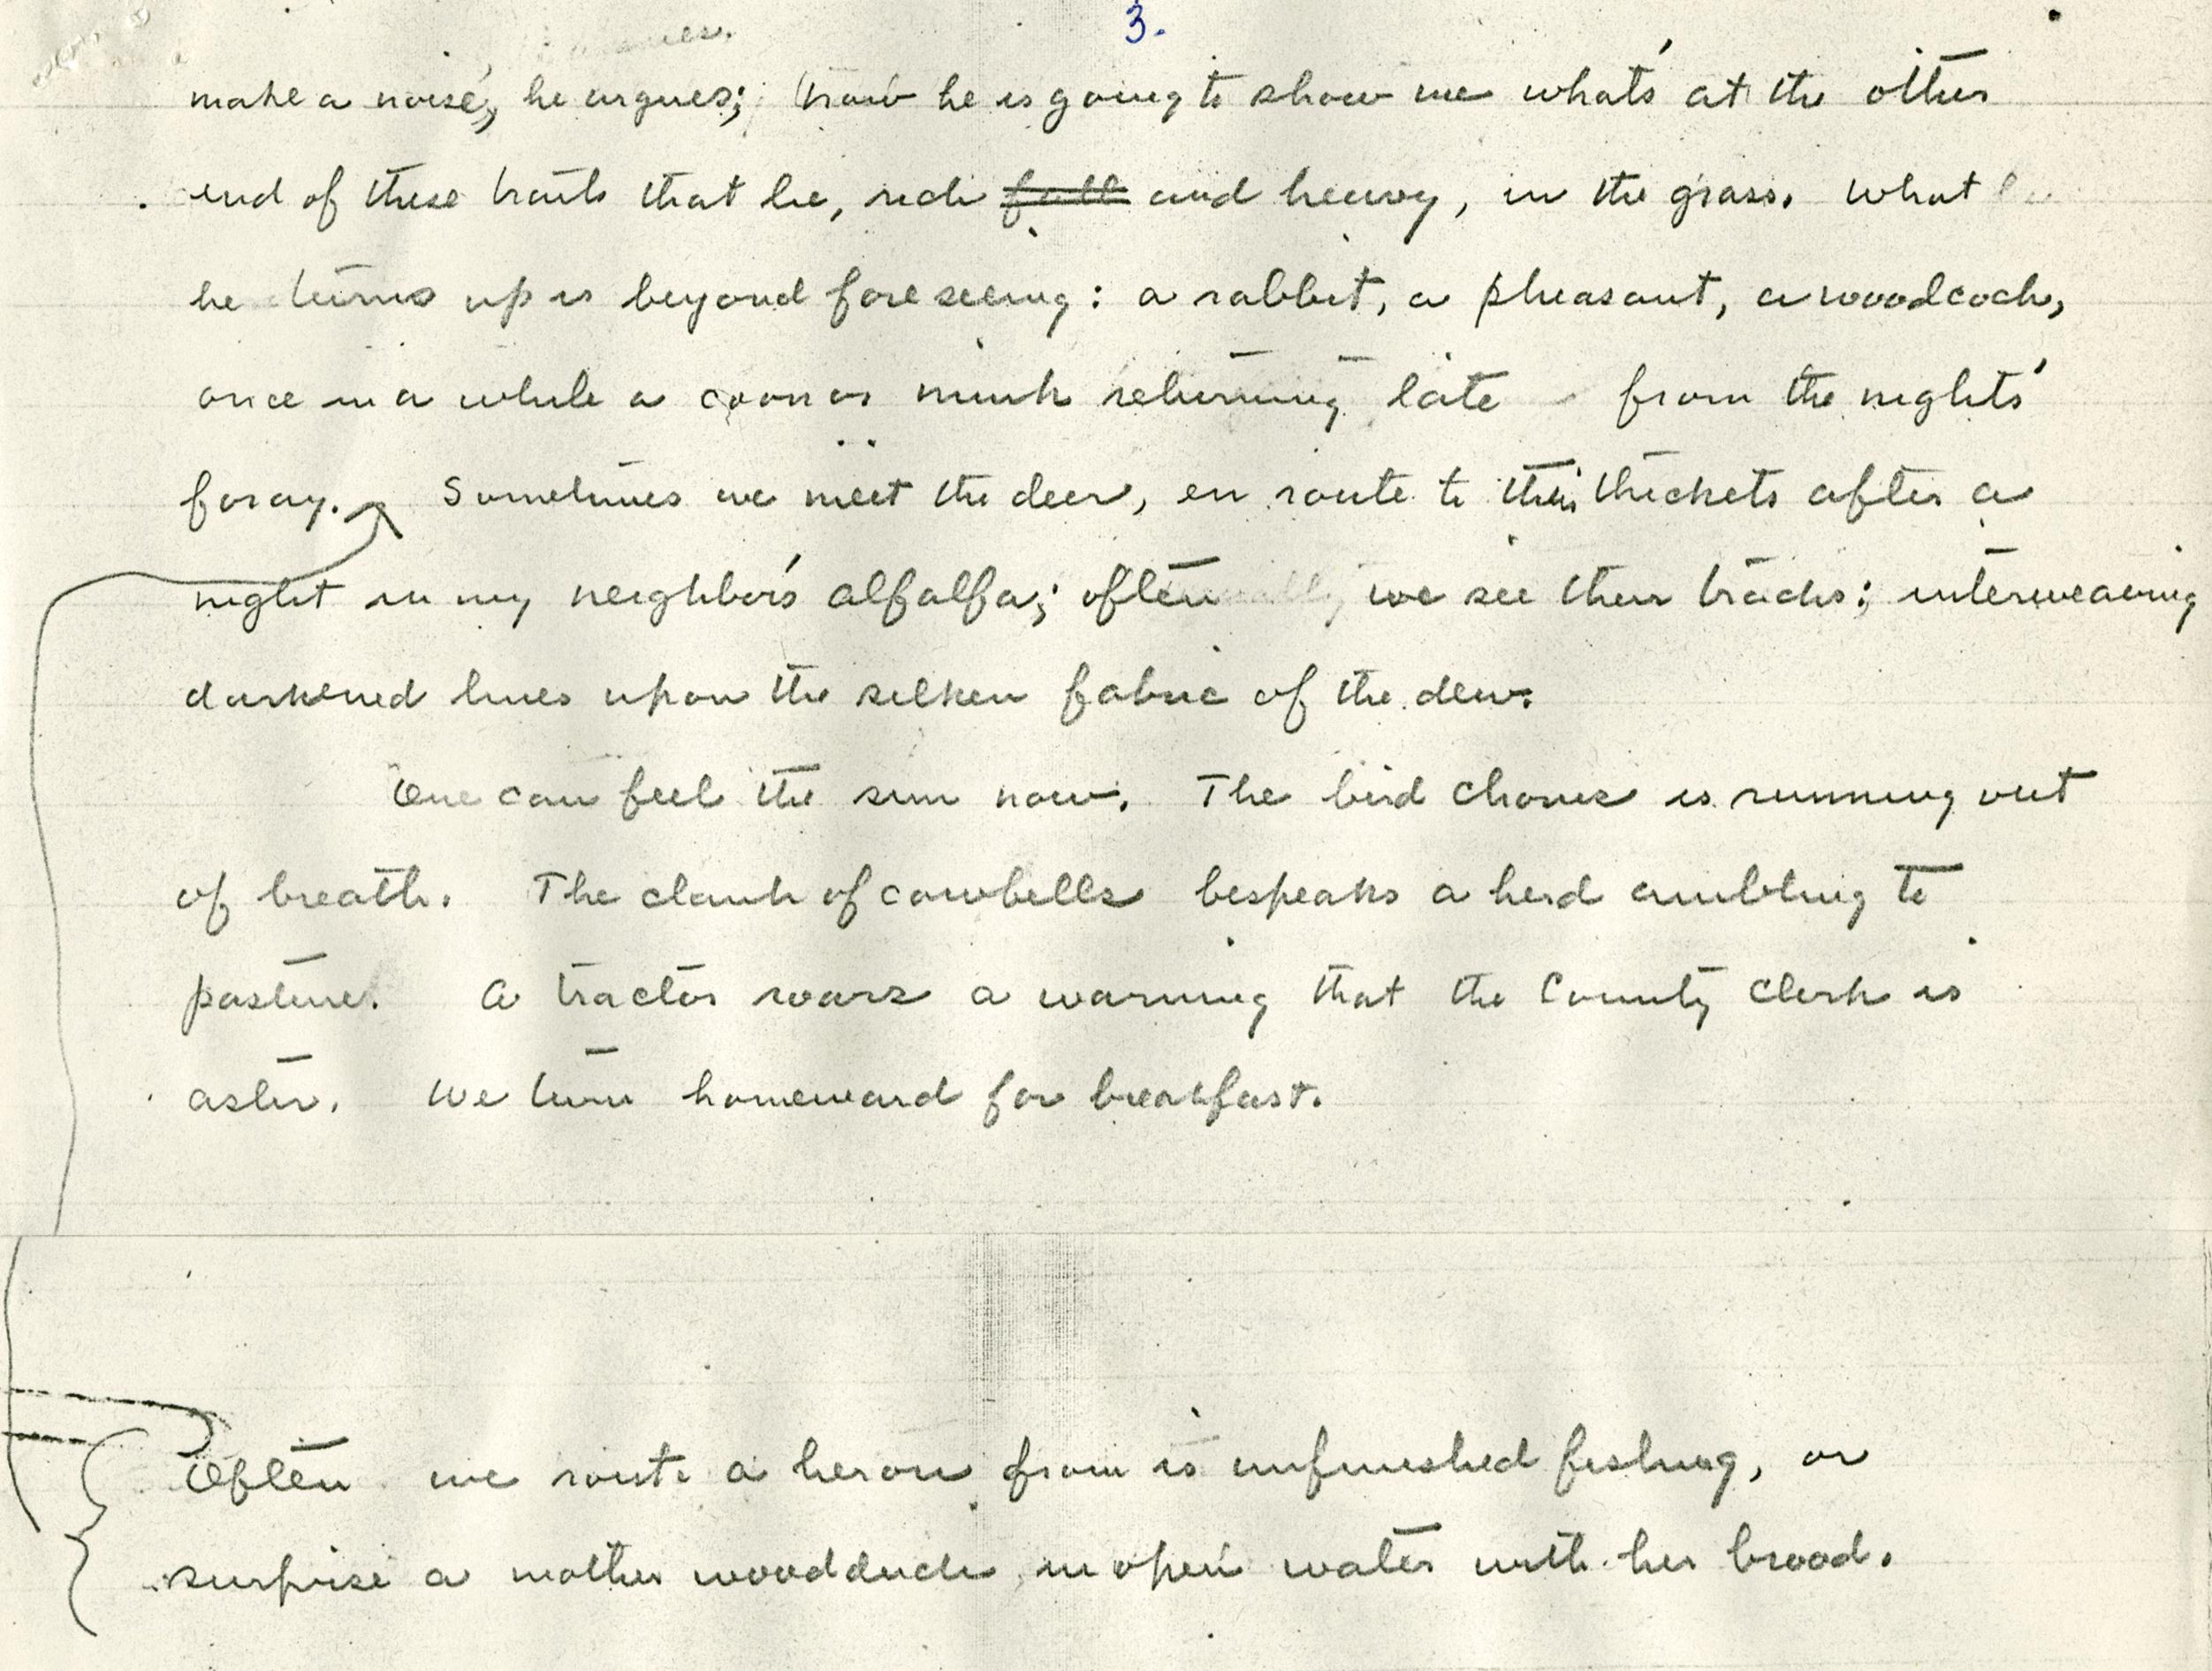 3.
make a noise, he argues; now he is going to show me what's at the other
end of these trails that lie, rich ~~full~~ and heavy, in the grass. What
he turns up is beyond foreseeing: a rabbit, a pheasant, a woodcock,
once in a while a coon or mink returning late from the night's
foray. Sometimes we meet the deer, en route to their thickets after a
night in my neighbor's alfalfa; often we see their tracks: interweaving
darkened lines upon the silken fabric of the dew.
One can feel the sun now. The bird chorus is running out
of breath. The clank of cowbells bespeaks a herd ambling to
pasture. A tractor roars a warning that the County Clerk is
astir. We turn homeward for breakfast.
Often we route a heron from is unfinished fishing, or
surprise a mother woodduck in open water with her brood.